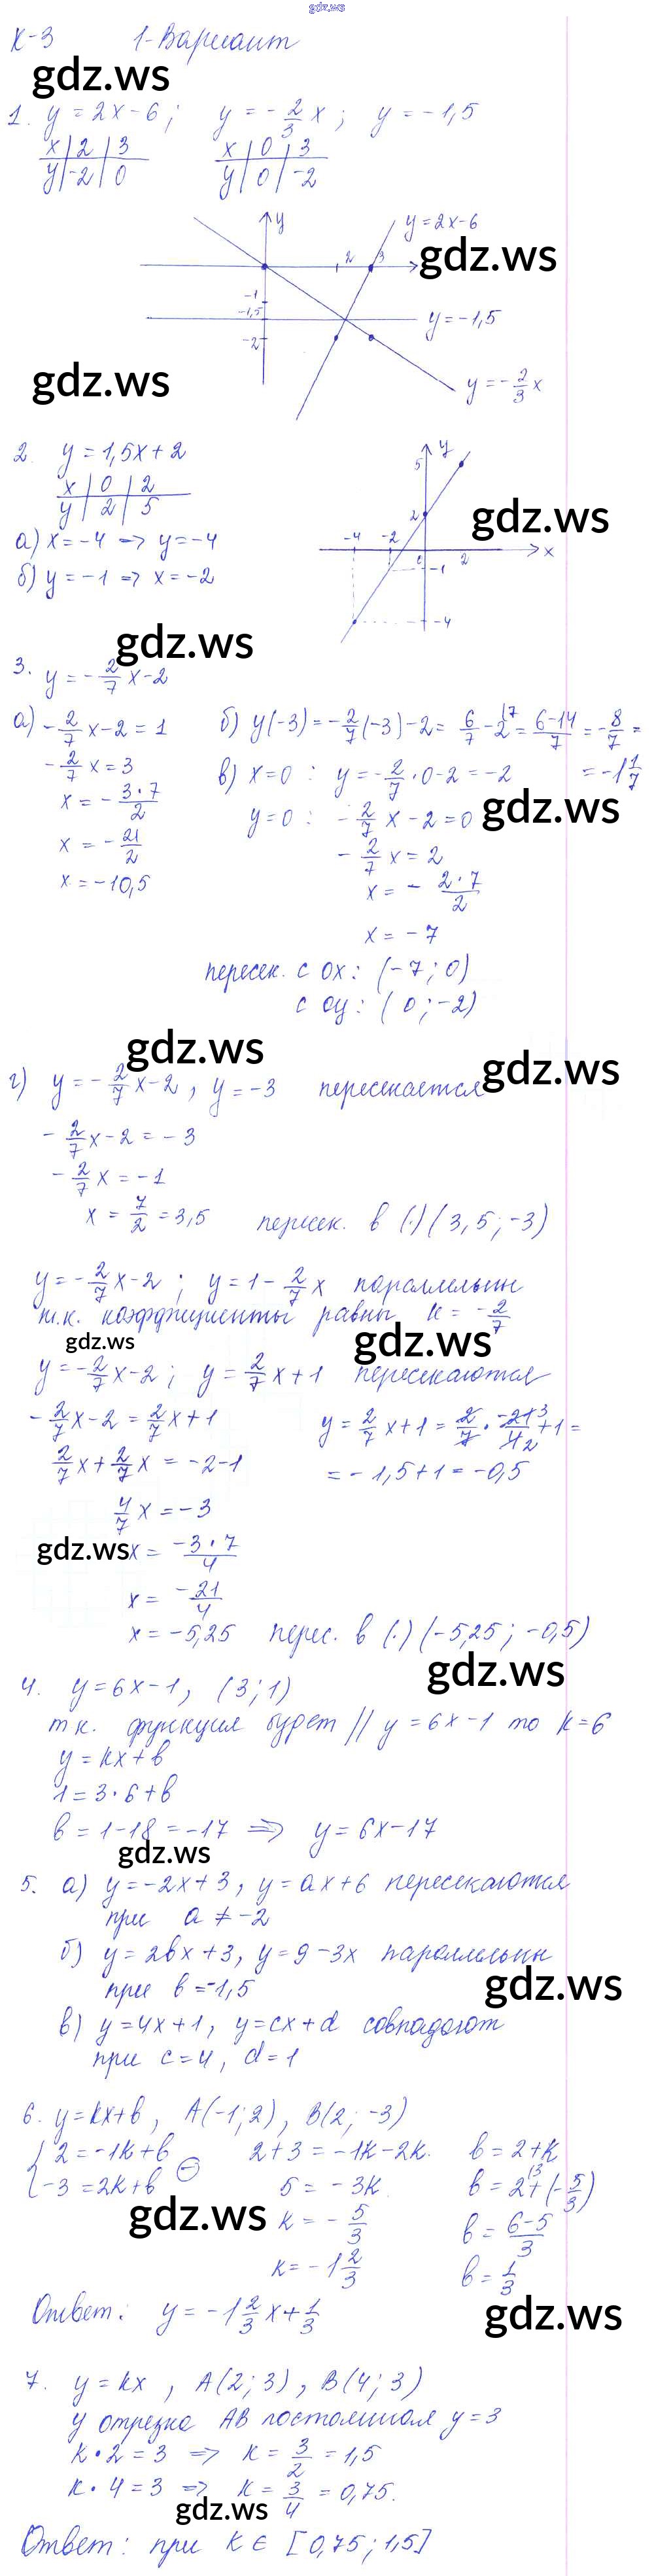 gdz.ws
К-3 1-Вариант
gdz.ws
1. y = 2x-6; y = -2/3 x; y = -1,5
x | 2 | 3 x | 0 | 3
y | -2 | 0 y | 0 | -2
y
y=2x-6
2 3
gdz.ws
-1
-1,5
y=-1,5
-2
gdz.ws
y=-2/3 x
2. y = 1,5x+2
x | 0 | 2
y | 2 | 5
y
5
2
gdz.ws
а) x = -4 => y = -4
-4 -2 0 2 x
б) y = -1 => x = -2
-1
-4
gdz.ws
3. y = -2/7 x-2
а) -2/7 x-2 = 1
-2/7 x = 3
x = -3·7/2
x = -21/2
x = -10,5
б) y(-3) = -2/7(-3)-2 = 6/7 - 2 = 6-14/7 = -8/7 =
= -1 1/7
в) x=0 : y = -2/7·0-2 = -2
gdz.ws
y=0 : -2/7 x-2=0
-2/7 x = 2
x = -2·7/2
x = -7
пересек. с ox: (-7; 0)
с oy: (0; -2)
gdz.ws
gdz.ws
г) y = -2/7 x-2, y = -3 пересекается
-2/7 x-2 = -3
-2/7 x = -1
x = 7/2 = 3,5 пересек. в (·) (3,5; -3)
y = -2/7 x-2; y = 1-2/7 x параллельны
т.к. коэффициенты равны k = -2/7
gdz.ws gdz.ws
y = -2/7 x-2; y = 2/7 x+1 пересекаются
-2/7 x-2 = 2/7 x+1
2/7 x+2/7 x = -2-1
4/7 x = -3
gdz.ws
x = -3·7/4
x = -21/4
x = -5,25 перес. в (·) (-5,25; -0,5)
y = 2/7 x+1 = 2/7 · -21/4 +1 =
= -1,5+1 = -0,5
gdz.ws
4. y = 6x-1, (3; 1)
т к. функция будет // y = 6x-1 то k=6
y = kx+b
1 = 3·6+b
b = 1-18 = -17 => y = 6x-17
gdz.ws
5. а) y = -2x+3, y = ax+6 пересекаются
при a ≠ -2
б) y = 2bx+3, y = 9-3x параллельны
при b = -1,5
gdz.ws
в) y = 4x+1, y = cx+d совпадают
при c = 4, d = 1
6. y = kx+b, A(-1; 2), B(2; -3)
{ 2 = -1k+b 2+3 = -1k-2k. b = 2+k
-3 = 2k+b (-) 5 = -3k. b = 2+(-5/3)
gdz.ws
k = -5/3 b = 6-5/3
k = -1 2/3 b = 1/3
Ответ: y = -1 2/3 x+1/3
gdz.ws
7. y = kx, A(2; 3), B(4; 3)
у отрезка AB постоянная y = 3
k·2 = 3 => k = 3/2 = 1,5
k·4 = 3 => k = 3/4 = 0,75.
gdz.ws
Ответ: при k ∈ [0,75; 1,5]